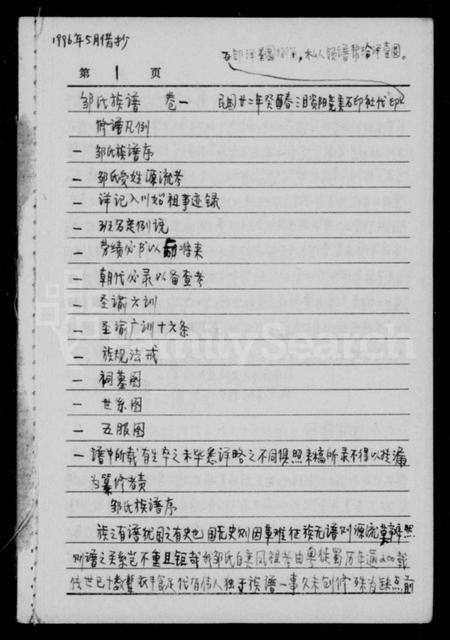 1996年5月借抄
第 1 页
邹氏族谱 卷一 民国廿二年癸酉春三月资阳 石印社代印
修谱凡例
一 邹氏族谱序
一 邹氏受姓源流考
一 详记入川始祖事迹録
一 班名定例说
一 劳绩必书以 将来
一 朝代必录以备查考
一 圣谕六训
一 圣谕广训十六条
一 族规法戒
一 祠墓图
一 世系图
一 五服图
一 谱中所载有生卒之未毕悉详略之不同俱照来稿所录不得以 漏
为纂修者责
邹氏族谱序
族之有谱犹国之有史也国无史则因革难征族无谱则源流莫辨然
则谱之关系岂不重且钜哉 邹氏自 祖考由粤徙蜀历年逾二百载
传世已十数 代有传人独于族谱一事久未创修殊为缺点前
FamilySearch